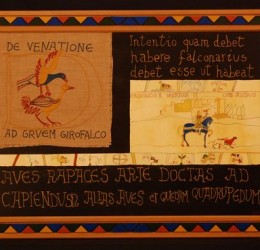 DE VENATIONE
AD GRVEM GIROFALCO
Intentio quam debet
habere falconarius
debet esse ut habeat
AVES RAPACES ARTE DOCTAS AD
CAPIENDVM ALIAS AVES ET QVEDAM QUADRUPEDUM